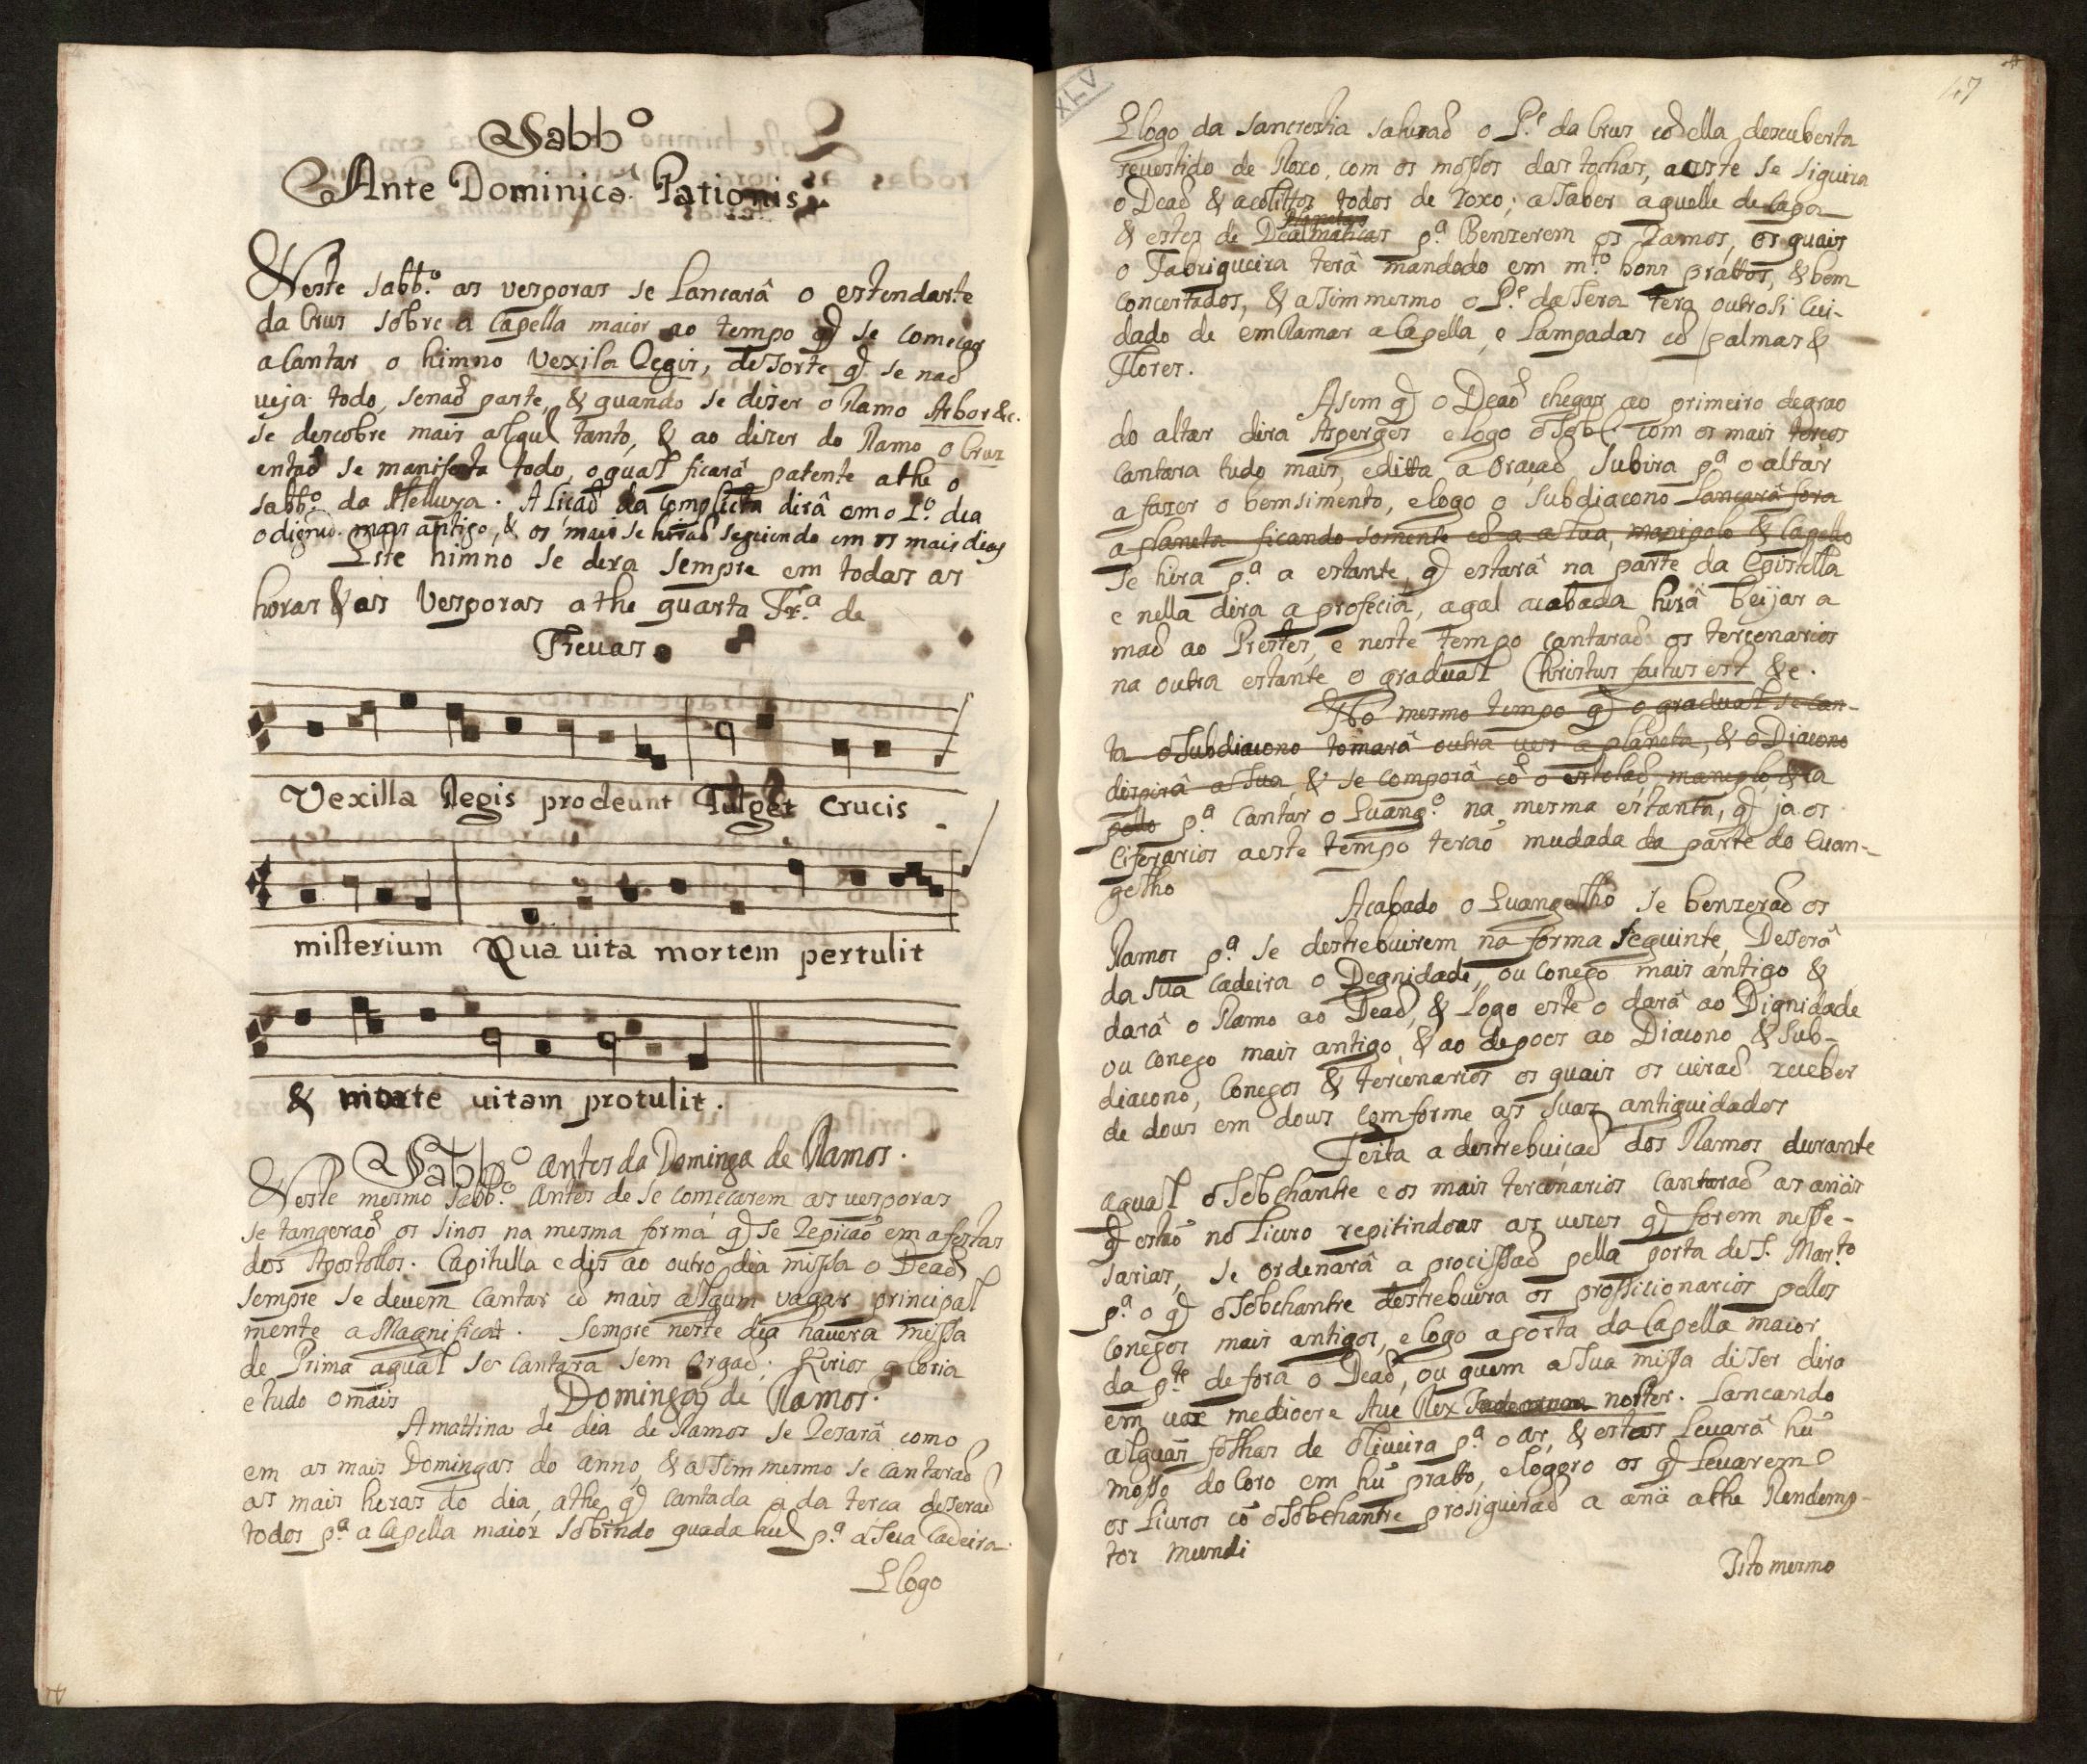 Sabb.º
Ante Dominicã Pationis.
Neste sabb.º as vesporas se lancarâ o estendarte
da Crus sobre a Capella maior ao tempo q̃ se comecar
a Cantar o himno Vexila Regis, de sorte q̃ se naõ
veja todo, senaõ parte, & quando se diser o Ramo Arbor &c.
se descobre mais algũ tanto, & ao diser do Ramo o Crux
entaõ se manifesta todo, o qual ficarâ patente athe o
sabb.º da Alleluya. A Liçaõ da Complecta dirâ em o 1.º dia
o dignid. mais antigo, & os mais se hiraõ seguindo em os mais dias
Este himno se dira sempre em todas as
horas & as Vesporas athe quarta Fr.ª de
Treuas.
Vexilla Regis prodeunt Fulget crucis
misterium Qua uita mortem pertulit
& morte uitam protulit.
Sabb.º antes da Dominga de Ramos.
Neste mesmo sabb.º antes de se comecarem as vesporas
se tangeraõ os sinos na mesma forma q̃ se Repicaõ em as festas
dos Apostollos. Capitulla e dis ao outro dia missa o Deaõ
sempre se deuem Cantar cõ mais algum vagar principal
mente a Magnificat. Sempre neste dia hauera missa
de Prima a qual se Cantarâ sem orgaõ; Kirios gloria
e tudo o mais Domingo de Ramos.
A mattina de dia de Ramos se Resarâ como
em as mais Domingas do anno, & assim mesmo se Cantaraõ
as mais horas do dia, athe q̃ Cantada a da terca deseraõ
todos p.ª a Capella maior sobindo quada hũ p.ª a sua Cadeira.
E logo
XLV
47
E logo da sancrestia sahiraõ o P.e da Crus cõ ella descuberta
revestido de Roxo, com os mossos das tochas, a este se siguira
o Deaõ & acolittos todos de roxo; a saber aquelle de Capa
& estes de Dealmaticas p.ª Benzerem os ramos, os quais
o Fabriqueira terâ mandado em m.to bons prattos, & bem
concertados, & assim mesmo o P.e da sera tera outrosi Cui-
dado de emRamar a Capella, e Lampadas cõ palmas &
Flores.
Asim q̃ o Deaõ chegar ao primeiro degrao
do altar dira Asperges e logo o sobC. com os mais terços
Cantara tudo mais, e ditta a oraçaõ subira p.ª o altar
a fazer o bemsimento, e logo o subdiacono Lancarâ fora
a planeta ficando somente cõ a alua, manipolo & Capello
se hira p.ª a estante, q̃ estarâ na parte da Epistolla
e nella dira a profecia, a qal acabada hirâ beijar a
maõ ao Prestes, e neste tempo cantaraõ os tercenarios
na outra estante o gradual Christus factus est &c.
No mesmo tempo q̃ o gradual se can-
ta o Subdiacono tomarâ outra ues a planeta, & o Diacono
despirâ a sua & se comporâ cõ o estolaõ, maniplo, & Ca
pello p.ª Cantar o Euang.º na mesma estanta, q̃ ja os
Ciferarios a este tempo teraõ mudada da parte do Euan-
gelho
Acabado o Euangelho se benzeraõ os
Ramos p.ª se destrebuirem na forma seguinte, Deserâ
da sua cadeira o Degnidade, ou Conego mais antigo &
darâ o Ramo ao Deaõ, & Logo este o darâ ao Dignidade
ou Conego mais antigo, & ao depoes ao Diacono & sub-
diacono, Conegos & tercenarios os quais os uiraõ receber
de dous em dous comforme as suas antiguidades
Feita a destrebuiçaõ dos Ramos durante
a qual o Sobchantre e os mais tercenarios Cantaraõ as anãs
q̃ estaõ no Liuro repitindoas as uezes q̃ forem nesse-
sarias, se ordenarâ a procissaõ pella porta de S. Mar.to
p.ª o q̃ o sobchantre destrebuira os prossicionarios pellos
Conegos mais antigos, e logo a porta da Capella maior
da p.te de fora o Deaõ, ou quem a sua missa diser dira
em uox mediocre Aue Rex noster. Lancando
alguãs folhas de oliueira p.ª o ar, & estas leuarâ hũ
mosso do Coro em hũ pratto, e logoro os q̃ leuarem
os Liuros cõ o Sobchantre prosiguiraõ a anã athe Rendemp-
tor Mundi
Isto mesmo